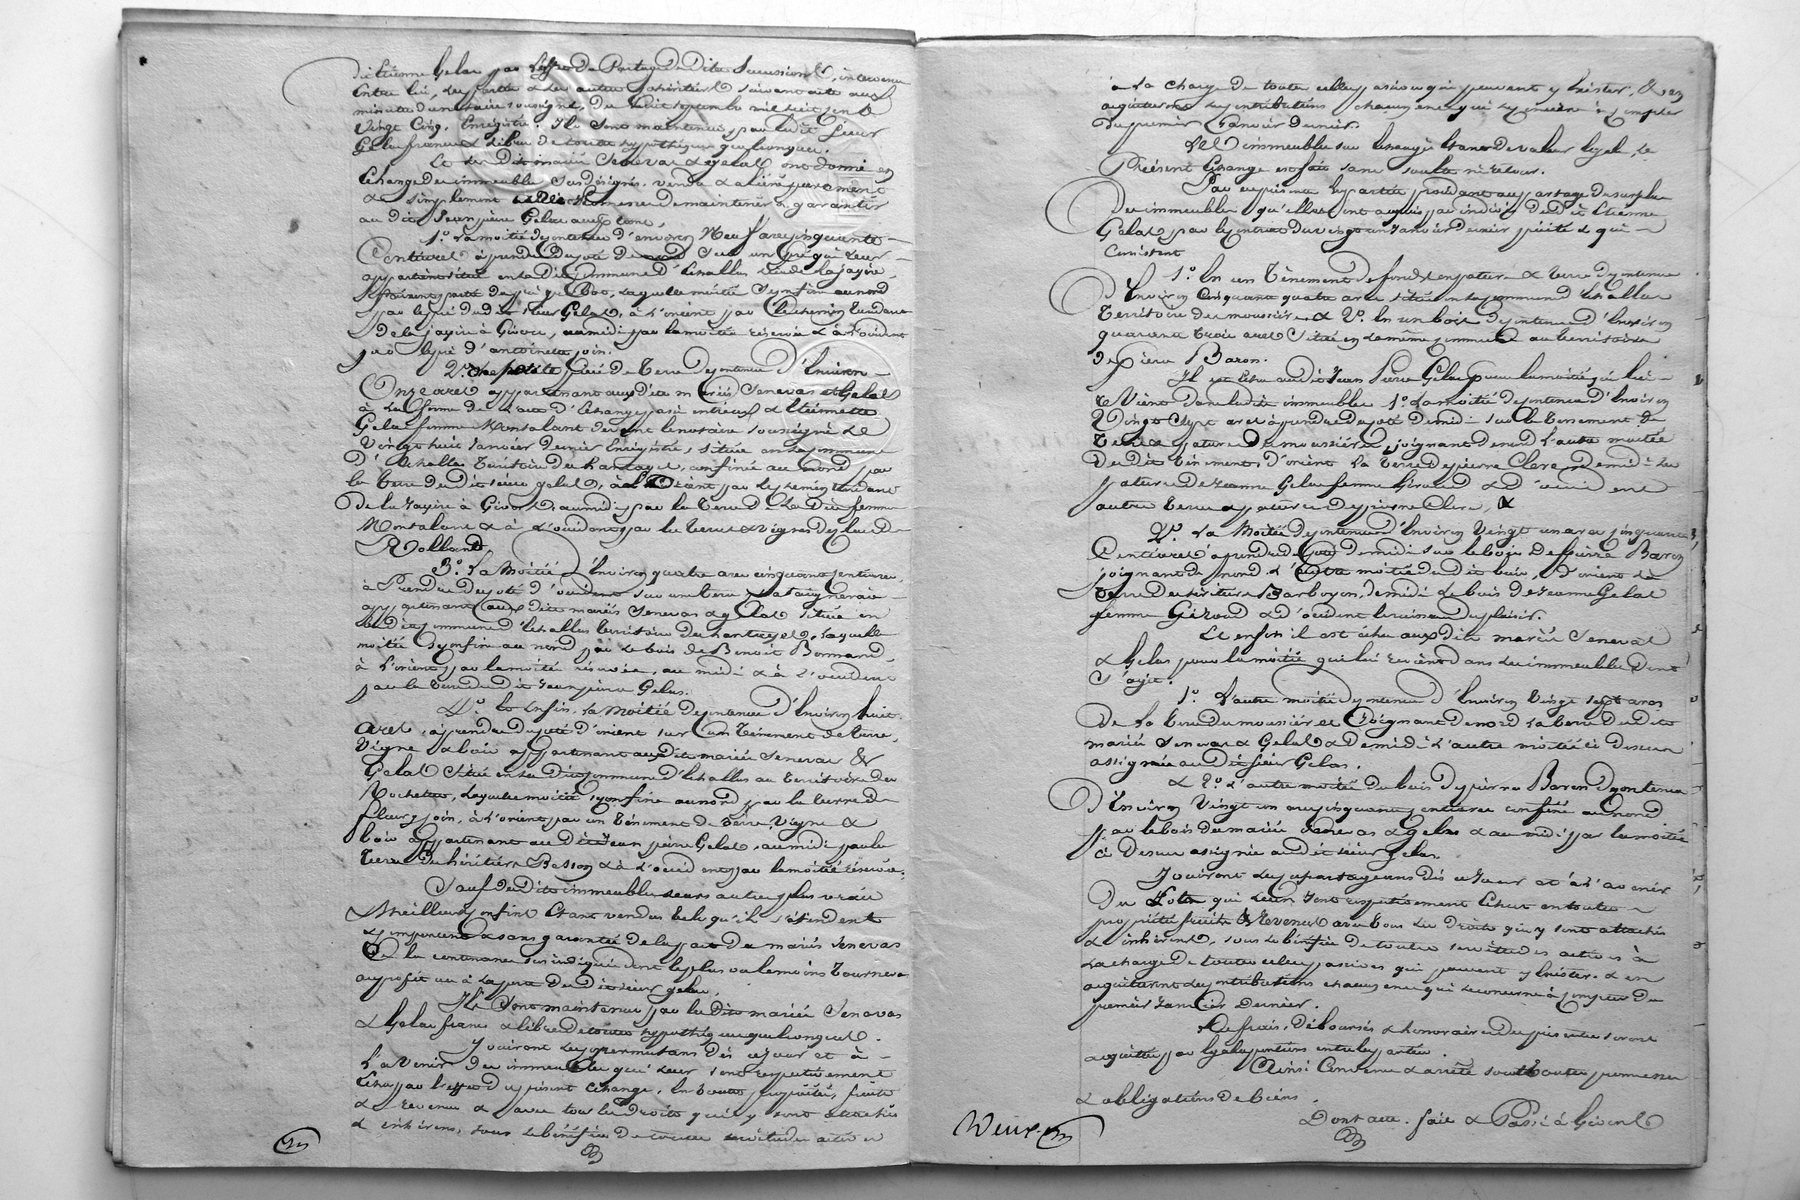 d'Etienne Gelas par l'effet du Partage de Dite Succession, intervenu
entre lui, les parties & les autres cohéritiers suivant acte aux
minutes du notaire soussigné, du huit septembre mil huit cent
Vingt Cinq, Enregistré. Ils sont maintenus par ledit Sieur
Gelas francs & libres de toutes hypothèques quelconques.
Et les dits mariés Senevas & Gelas ont donné en
Echange des immeubles Susdésignés, vendu & aliéné purement
& simplement avec Promesse de maintenir & garantir
au dit Jean pierre Gelas
1.° La moitié de contenue d'environ Neuf ares cinquante
Centiares à prendre du côté de nord Sur un Pré qui leur
appartient situé en la Dite Commune d'Echallas lieu de la jayère,
laquelle moitié se confine au nord
par le pré dudit sieur Gelas, à l'orient par le chemin tendant
de la jayère à Givors, au midi par la moitié réservée & à l'occident
par le pré d'antoinette join.
2.° pièce de Terre de contenue D'Environ
Onze ares appartenant aux dits mariés Senevas & Gelas
à la forme de l'acte d'Echange passé entr'eux & Etiennette
Gelas femme Montalant devant le notaire soussigné le
Vingt huit Janvier dernier Enregistré, située en la commune
D'Echallas Territoire du hantaget, confiné au nord par
la terre dudit sieur gelas, à l'Orient par le chemin tendant
de la Jayère à Givors, au midi par la terre de La Dite femme
Montalant & à l'occident par les terres & vignes du sieur de
Rolland.
3.° La Moitié D'Environ quatre ares cinquante centiares,
à Prendre du coté d'occident sur une terre & chataigneraie
appartenant aux dits mariés Senevas & Gelas Située en
la dite Commune d'Echallas territoire du hantaget, Laquelle
moitié se confine au nord par le bois de Benoit Bonnand,
à l'orient par la moitié réservée, au midi & à l'occident
par la terre du dit Jean pierre Gelas.
4.° Et Enfin, la Moitié de contenue D'Environ huit
ares, à prendre du coté d'orient sur Un Tènement de terre,
Vigne & bois appartenant aux dits mariés Senevas &
Gelas Situé en la Dite Commune d'Echallas au territoire des
Rochettes, Laquelle moitié se confine au nord par la terre de
fleury join, à l'orient par un tènement de terre, Vigne &
bois appartenant au dit Jean pierre Gelas, au midi par la
terre des héritiers Besson & à l'occident par la moitié réservée.
Sauf des Dits immeubles leurs autres plus vrais &
Meilleurs confins Etant vendus tels qu'ils s'étendent
& comportent & sans garantie de la part des mariés Senevas
De la contenance sus indiquée dont le plus ou le moins tournera
au profit ou à la perte du dit sieur gelas.
Ils Sont maintenus par les Dits mariés Senevas
& Gelas francs & libres de toutes hypothèques quelconques.
Jouiront les copermutans Dès ce jour et à
L'avenir des immeubles qui leur sont respectivement
Echus par l'effet du présent échange, En toute propriété, fruits
& revenus & avec tous les droits qui y sont attachés
& inhérens, sous le bénéfice de toutes servitudes actives
à La charge de toutes celles passives qui peuvent y Exister, & en
acquitteront les contributions chacun en ce qui le concerne à Compter
du premier Janvier dernier.
Les immeubles sus Echangés étant de valeur égale, Le
Présent Echange est fait sans soulte ni retour.
Par ces présentes les parties procédant au partage du surplus
Des immeubles qu'elles ont acquis par indivis dudit Etienne
Gelas par le contrat du vingt un Janvier dernier précité & qui
Consistent
1.° En un Tènement de fonds en pature & terre de contenue
D'Environ Cinquante quatre ares situé en la commune d'Echallas
Territoire des moussières & 2.° En un bois de contenue D'Environ
quarante trois ares Situé en la même commune au territoire
de pierre Baron.
Il est Echu audit Jean Pierre Gelas pour la moitié qui lui
reVient dans les dits immeubles 1.° La moitié de contenue D'Environ
Vingt Sept ares à prendre du coté de midi sur le tènement de
terre & pature des moussières, joignant de nord l'autre moitié
du dit tènement, d'orient La terre de pierre Clerc, de midi La
pature de Jeanne Gelas femme Giraud & d'occident
autre terre & pature de pierre Clerc, &
2.° La Moitié de contenue D'Environ Vingt un ares cinquante
Centiares à prendre du Coté de midi sur le bois de pierre Baron
joignant de nord l'autre moitié du dit bois, d'orient La
terre des héritiers Barboyon, de midi le bois de Jeanne Gelas
femme Giraud & d'occident le ruisseau de plaisir.
Et enfin il est échu aux dits mariés Senevas
& Gelas pour la moitié qui lui revient dans les immeubles Dont
s'agit.
1.° L'autre moitié de contenue d'Environ Vingt sept ares
de la terre des moussières joignant de nord La terre des dits
mariés Senevas & Gelas & de midi l'autre moitié ci dessus
assignée au dit sieur Gelas.
& 2.° L'autre moitié du bois de pierre Baron de contenue
D'Environ Vingt un ares cinquante centiares confiné au Nord
par le bois des mariés Senevas & Gelas & au midi par la moitié
ci Dessus assignée au dit sieur gelas.
Jouiront les copartageans Dès ce Jour et à l'avenir
Des Lots qui leur sont respectivement Echus en toute
propriété fruits & Revenus avec tous les Droits qui y sont attachés
& inhérens, sous le bénéfice de toutes servitudes actives à
La charge de toutes celles passives qui peuvent y Exister, & en
acquitteront les contributions chacun en ce qui le concerne à compter du
premier Janvier Dernier.
Les frais, déboursés & honoraires des présentes seront
acquittés par égales portions entre les parties.
Ainsi Convenu & arrêté sous toutes promesses
& obligations de biens.
Dont acte. fait & Passé à Givors